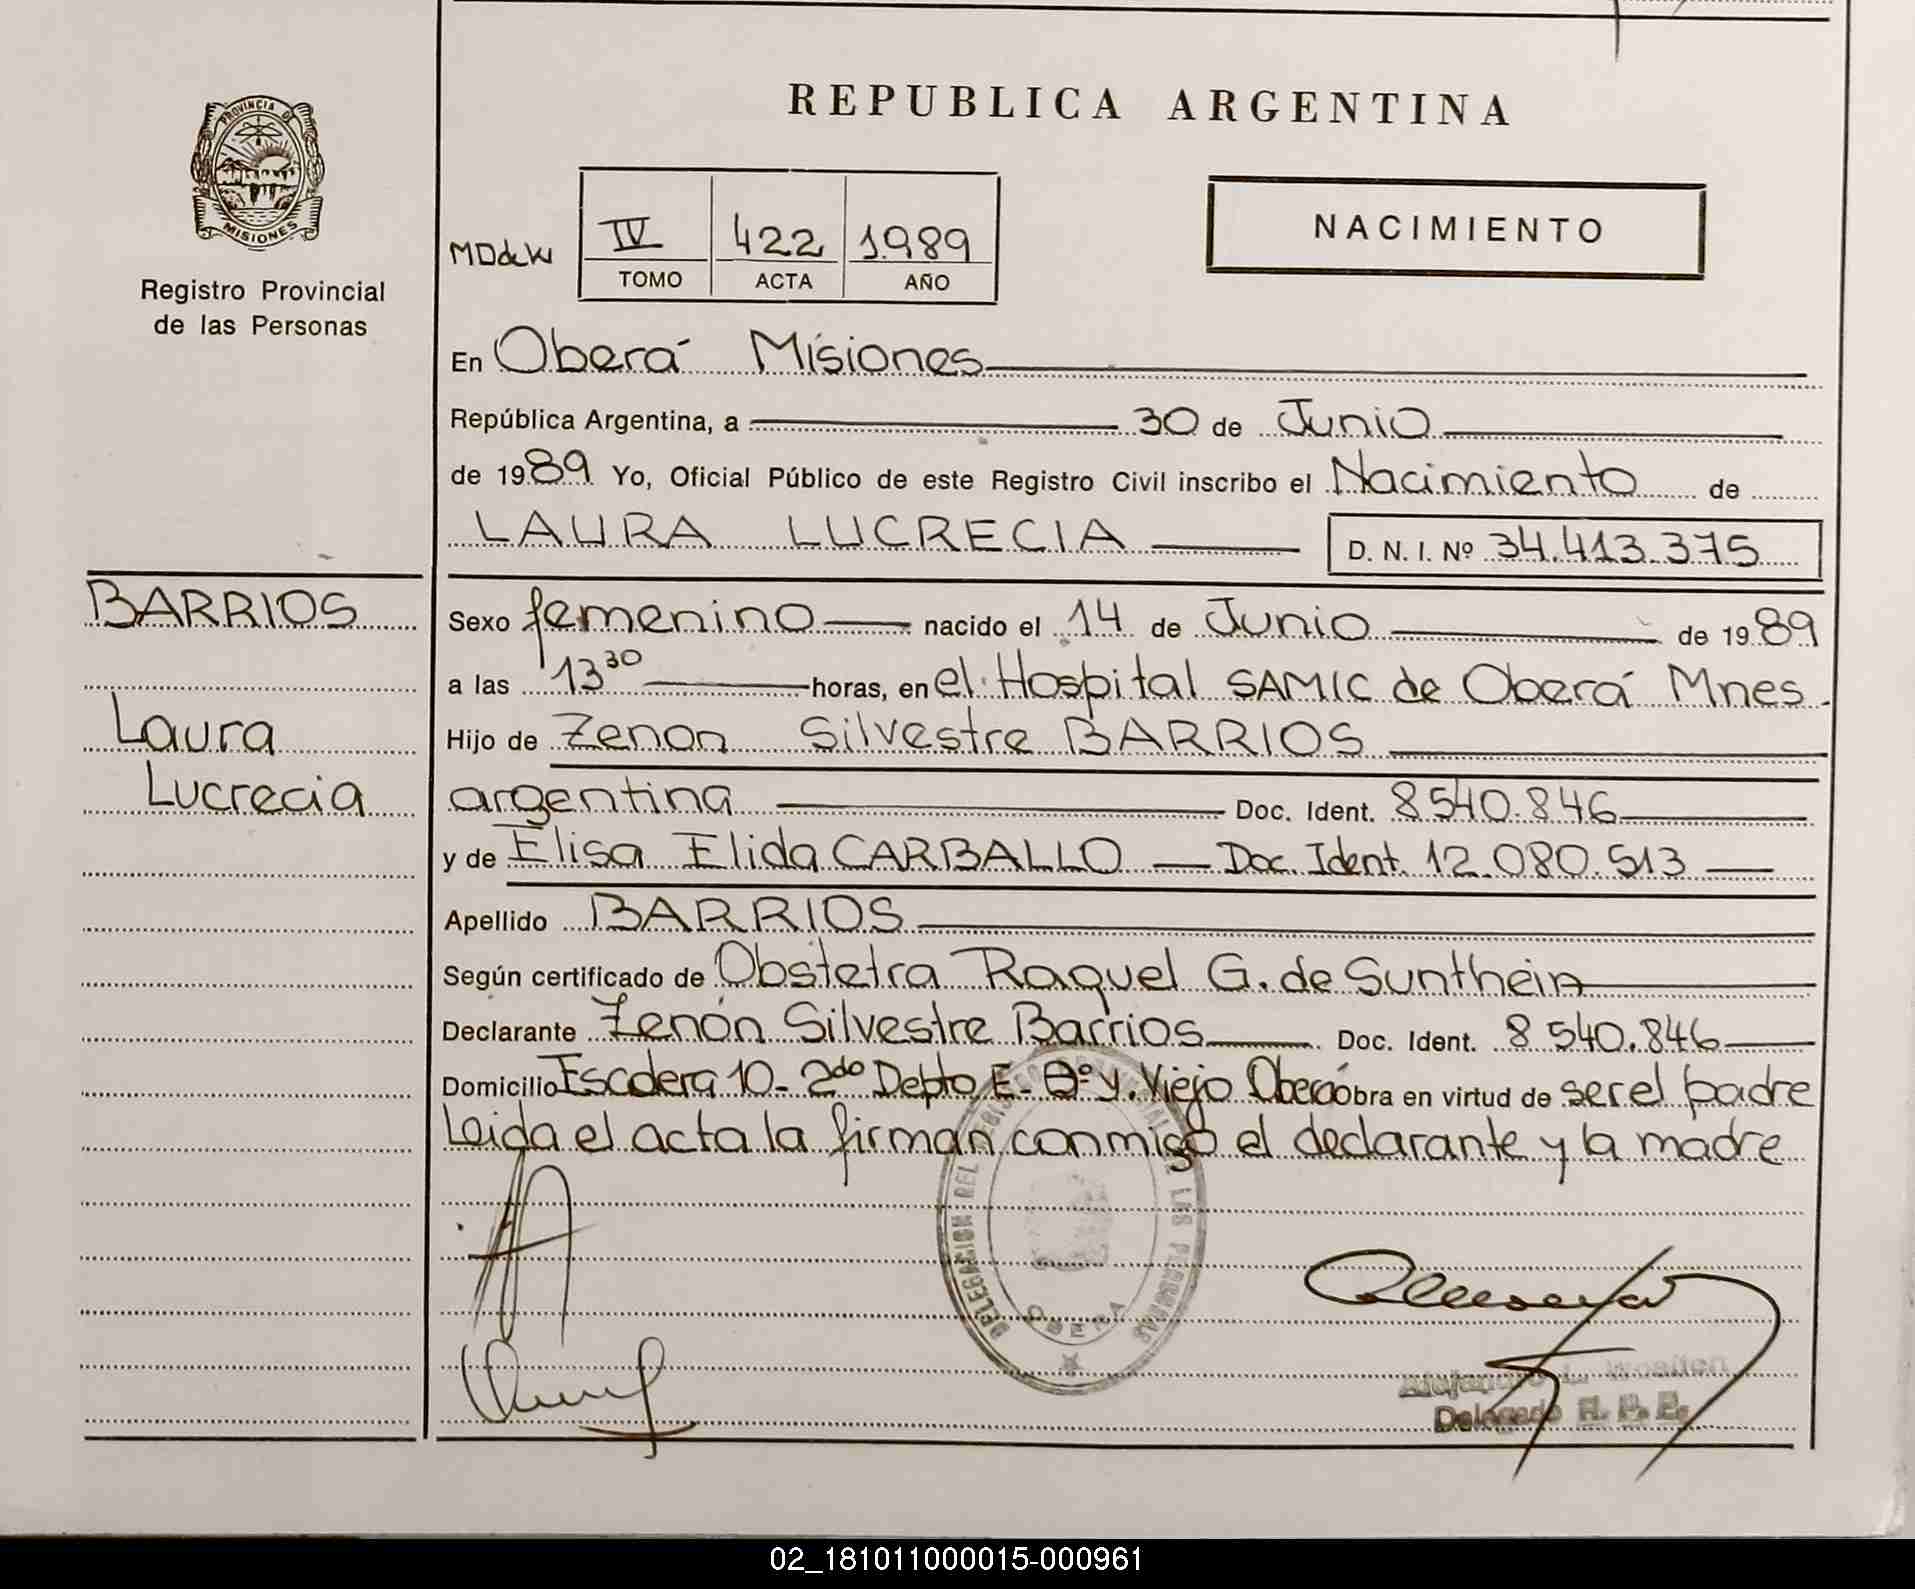 REPUBLICA ARGENTINA
PROVINCIA DE
MISIONES
Registro Provincial
de las Personas
IV 422 1.989
TOMO ACTA AÑO
NACIMIENTO
En Oberá Misiones
República Argentina, a 30 de Junio
de 1989 Yo, Oficial Público de este Registro Civil inscribo el Nacimiento de
LAURA LUCRECIA D. N. I. Nº 34.413.375
BARRIOS
Laura
Lucrecia
Sexo femenino nacido el 14 de Junio de 1989
a las 13 30 horas, en el Hospital SAMIC de Oberá Mnes.
Hijo de Zenon Silvestre BARRIOS
argentina Doc. Ident. 8.540.846
y de Elisa Elida CARBALLO Doc. Ident. 12.080.513
Apellido BARRIOS
Según certificado de Obstetra Raquel G. de Sunthein
Declarante Zenón Silvestre Barrios Doc. Ident. 8.540.846
Domicilio Escalera 10- 2do Depto E- Bº Y. Viejo Oberá obra en virtud de ser el padre
Leida el acta la firman conmigo el declarante y la madre
DELEGACION DEL REGISTRO PROVINCIAL DE LAS PERSONAS
OBERA
Delegado R. P. P.
02_181011000015-000961